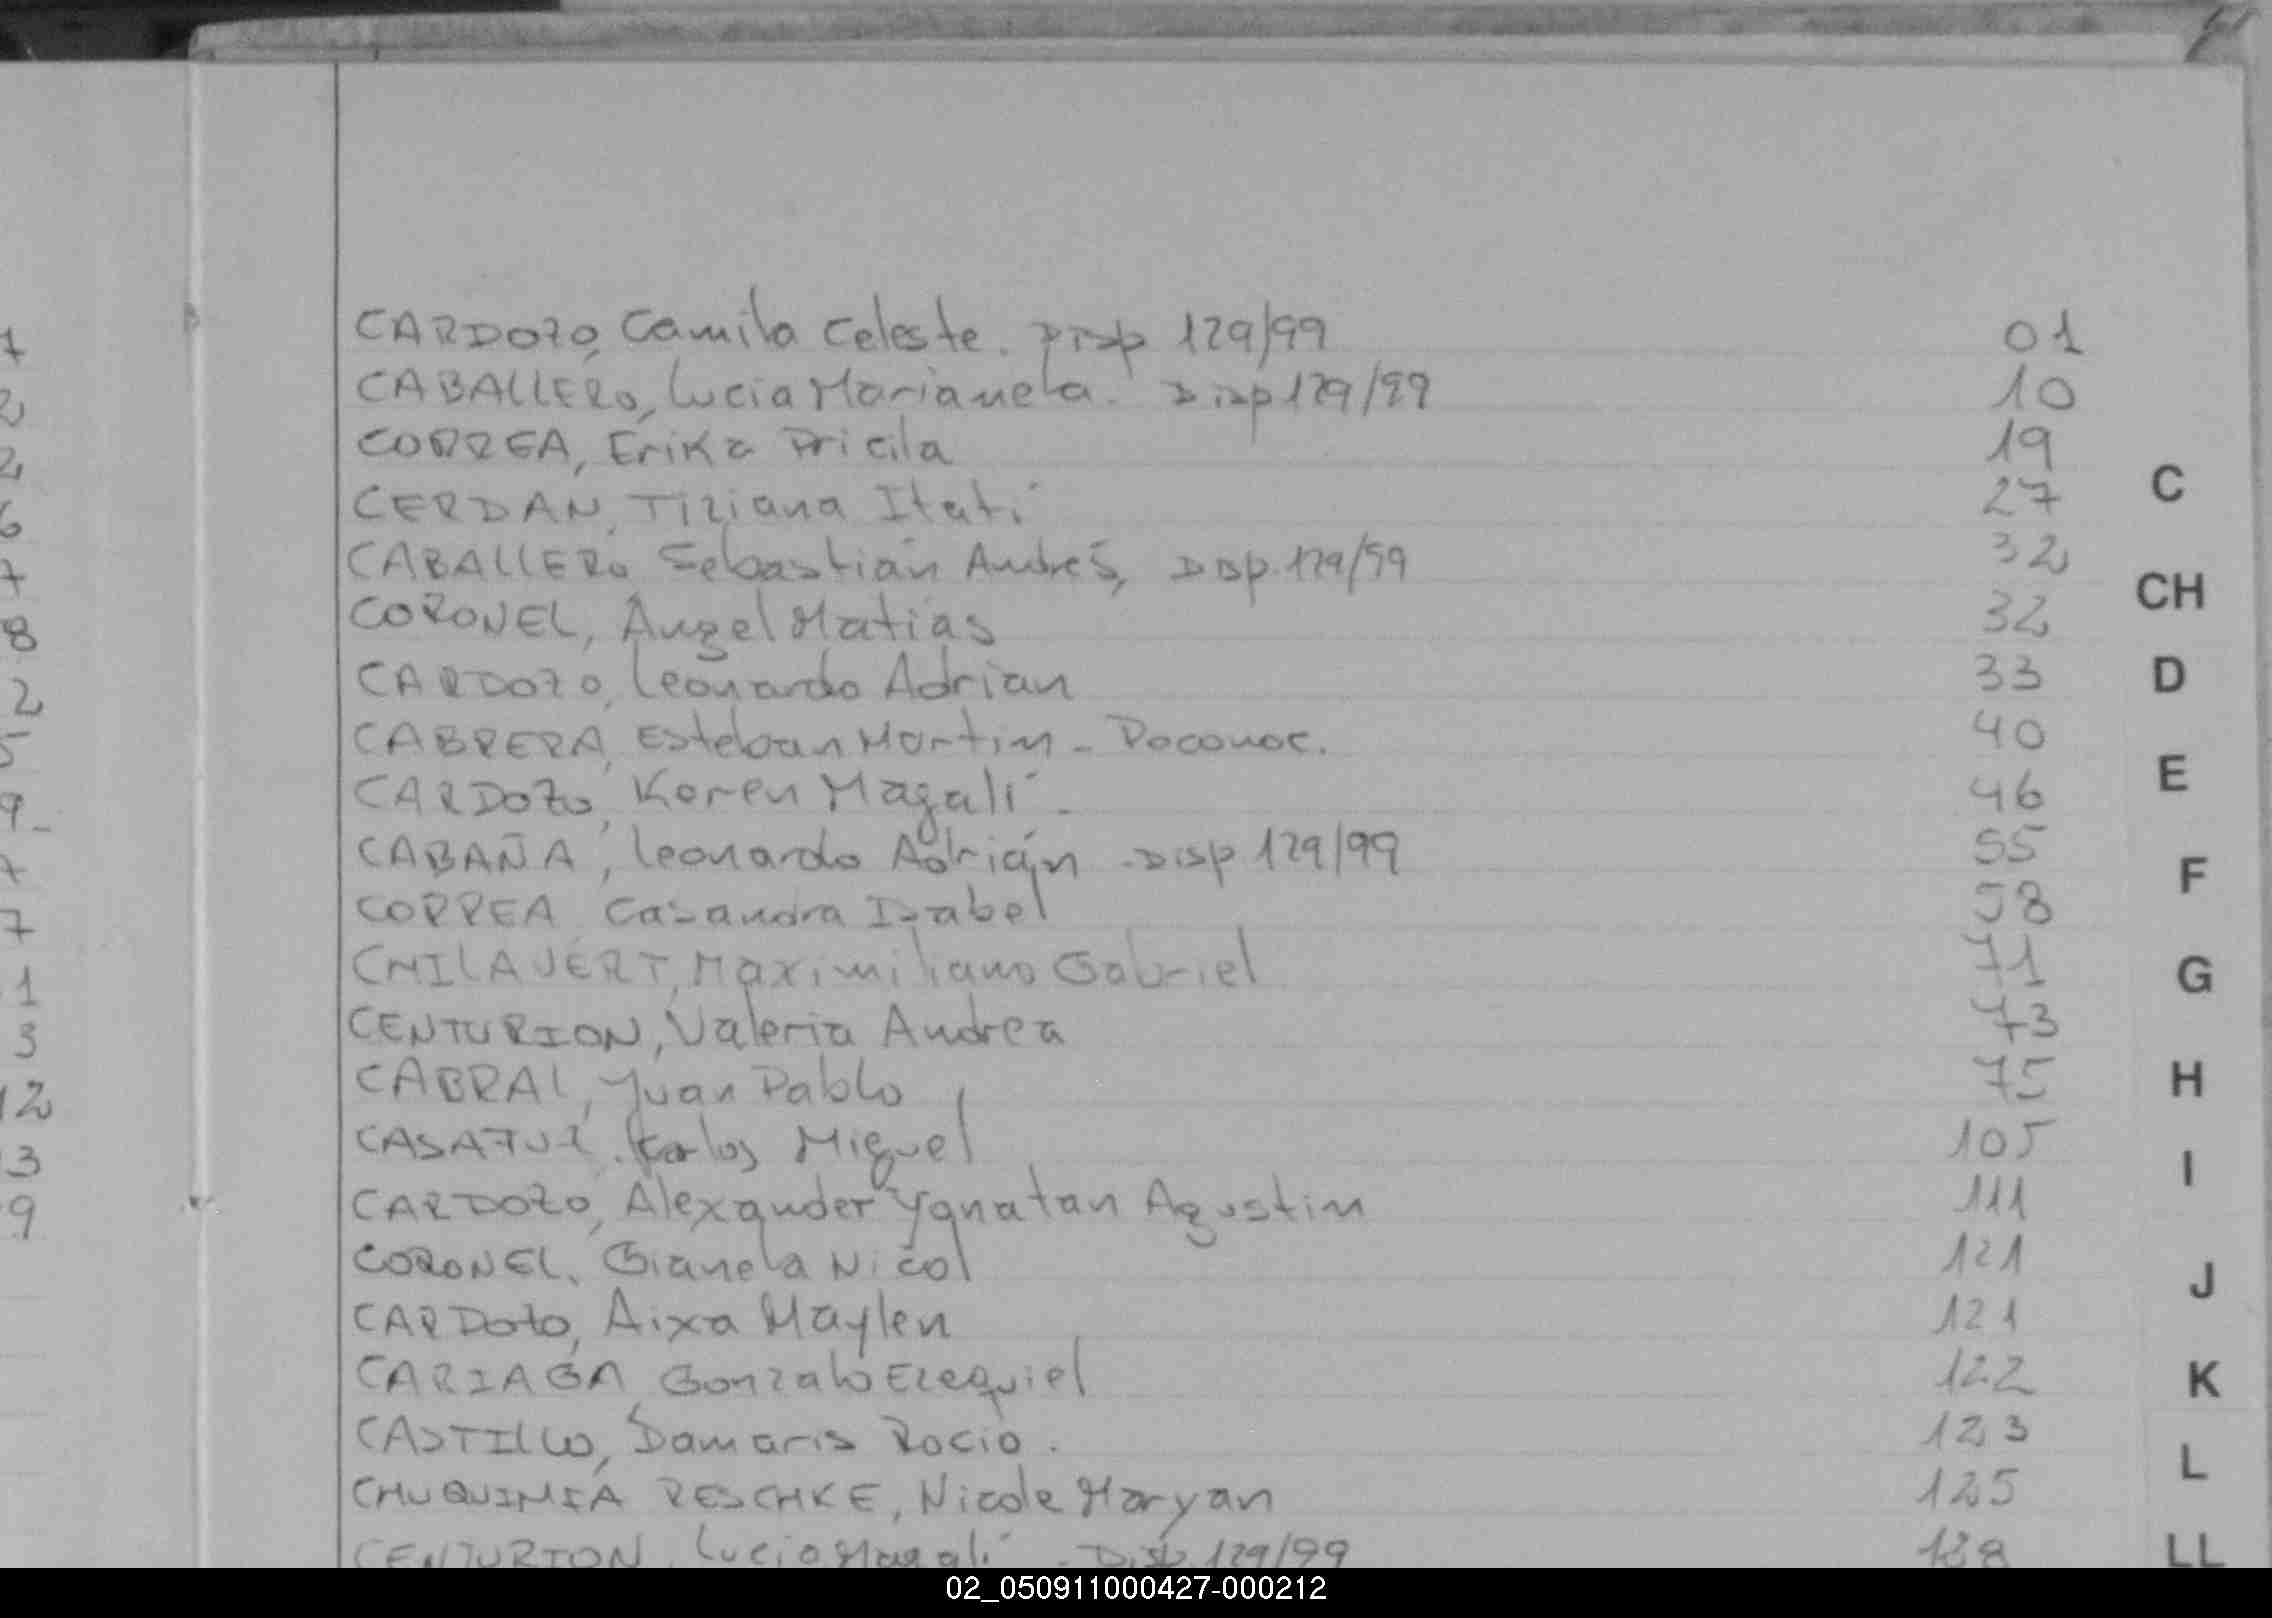 CARDOZO, Camila Celeste. Disp 129/99 01
CABALLERO, Lucia Marianela. Disp 129/99 10
CORREA, Erika Pricila 19
CERDAN, Tiziana Itatí 27
CABALLERO, Sebastián Andrés, Disp. 129/99 32
CORONEL, Ángel Matías 32
CARDOZO, Leonardo Adrian 33
CABRERA, Esteban Martin - 40
CARDOZO, Karen Magalí - 46
CABAÑA, Leonardo Adrián - Disp 129/99 55
CORREA Casandra Isabel 58
CHILAVERT, Maximiliano Gabriel 71
CENTURION, Valeria Andrea 73
CABRAL, Juan Pablo 75
Miguel 105
CARDOZO, Alexander Yonatan Agustin 111
CORONEL, Gianela Nicol 121
CARDOZO, Aixa Maylen 121
CARIAGA, Gonzalo Ezequiel 122
CASTILLO, Damaris Rocio. 123
CHUQUIMIA RESCHKE, Nicole Maryan 125
CENTURION, Lucia Magalí - Disp. 129/99
C
CH
D
E
F
G
H
I
J
K
L
LL
7
2
2
6
7
8
2
5
9-
7
7
1
3
12
3
9
02_050911000427-000212